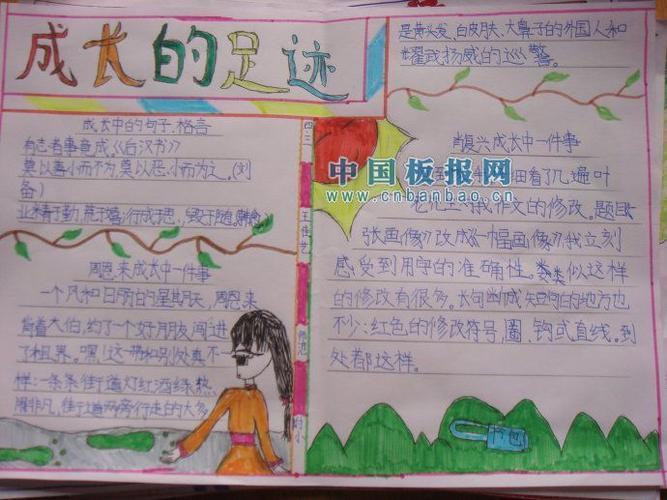 成长的足迹
成长中的句子、格言
有志者事竟成《后汉书》
莫以善小而不为,莫以恶小而为之。(刘
备)
业精于勤,荒于嬉;行成于思,毁于随。韩愈
周恩来成长中一件事
一个风和日丽的星期天,周恩来
背着大伯,约了一个好朋友闯进
了租界。嘿!这一带和别处真不一
样:一条条街道灯红酒绿,热
闹非凡,街道两旁行走的大多
四三
王佳艺
师范
附小
是黄头发、白皮肤、大鼻子的外国人和
耀武扬威的巡警。
肖复兴成长中一件事
中国板报网
www.cnbanbao.cn
细看了几遍叶
老先生对我作文的修改。题目
张画像》改成《一幅画像》我立刻
感受到用字的准确性。类似这样
的修改有很多。长句断成短句的地方也
不少:红色的修改符号,圈、钩或直线。到
处都这样。